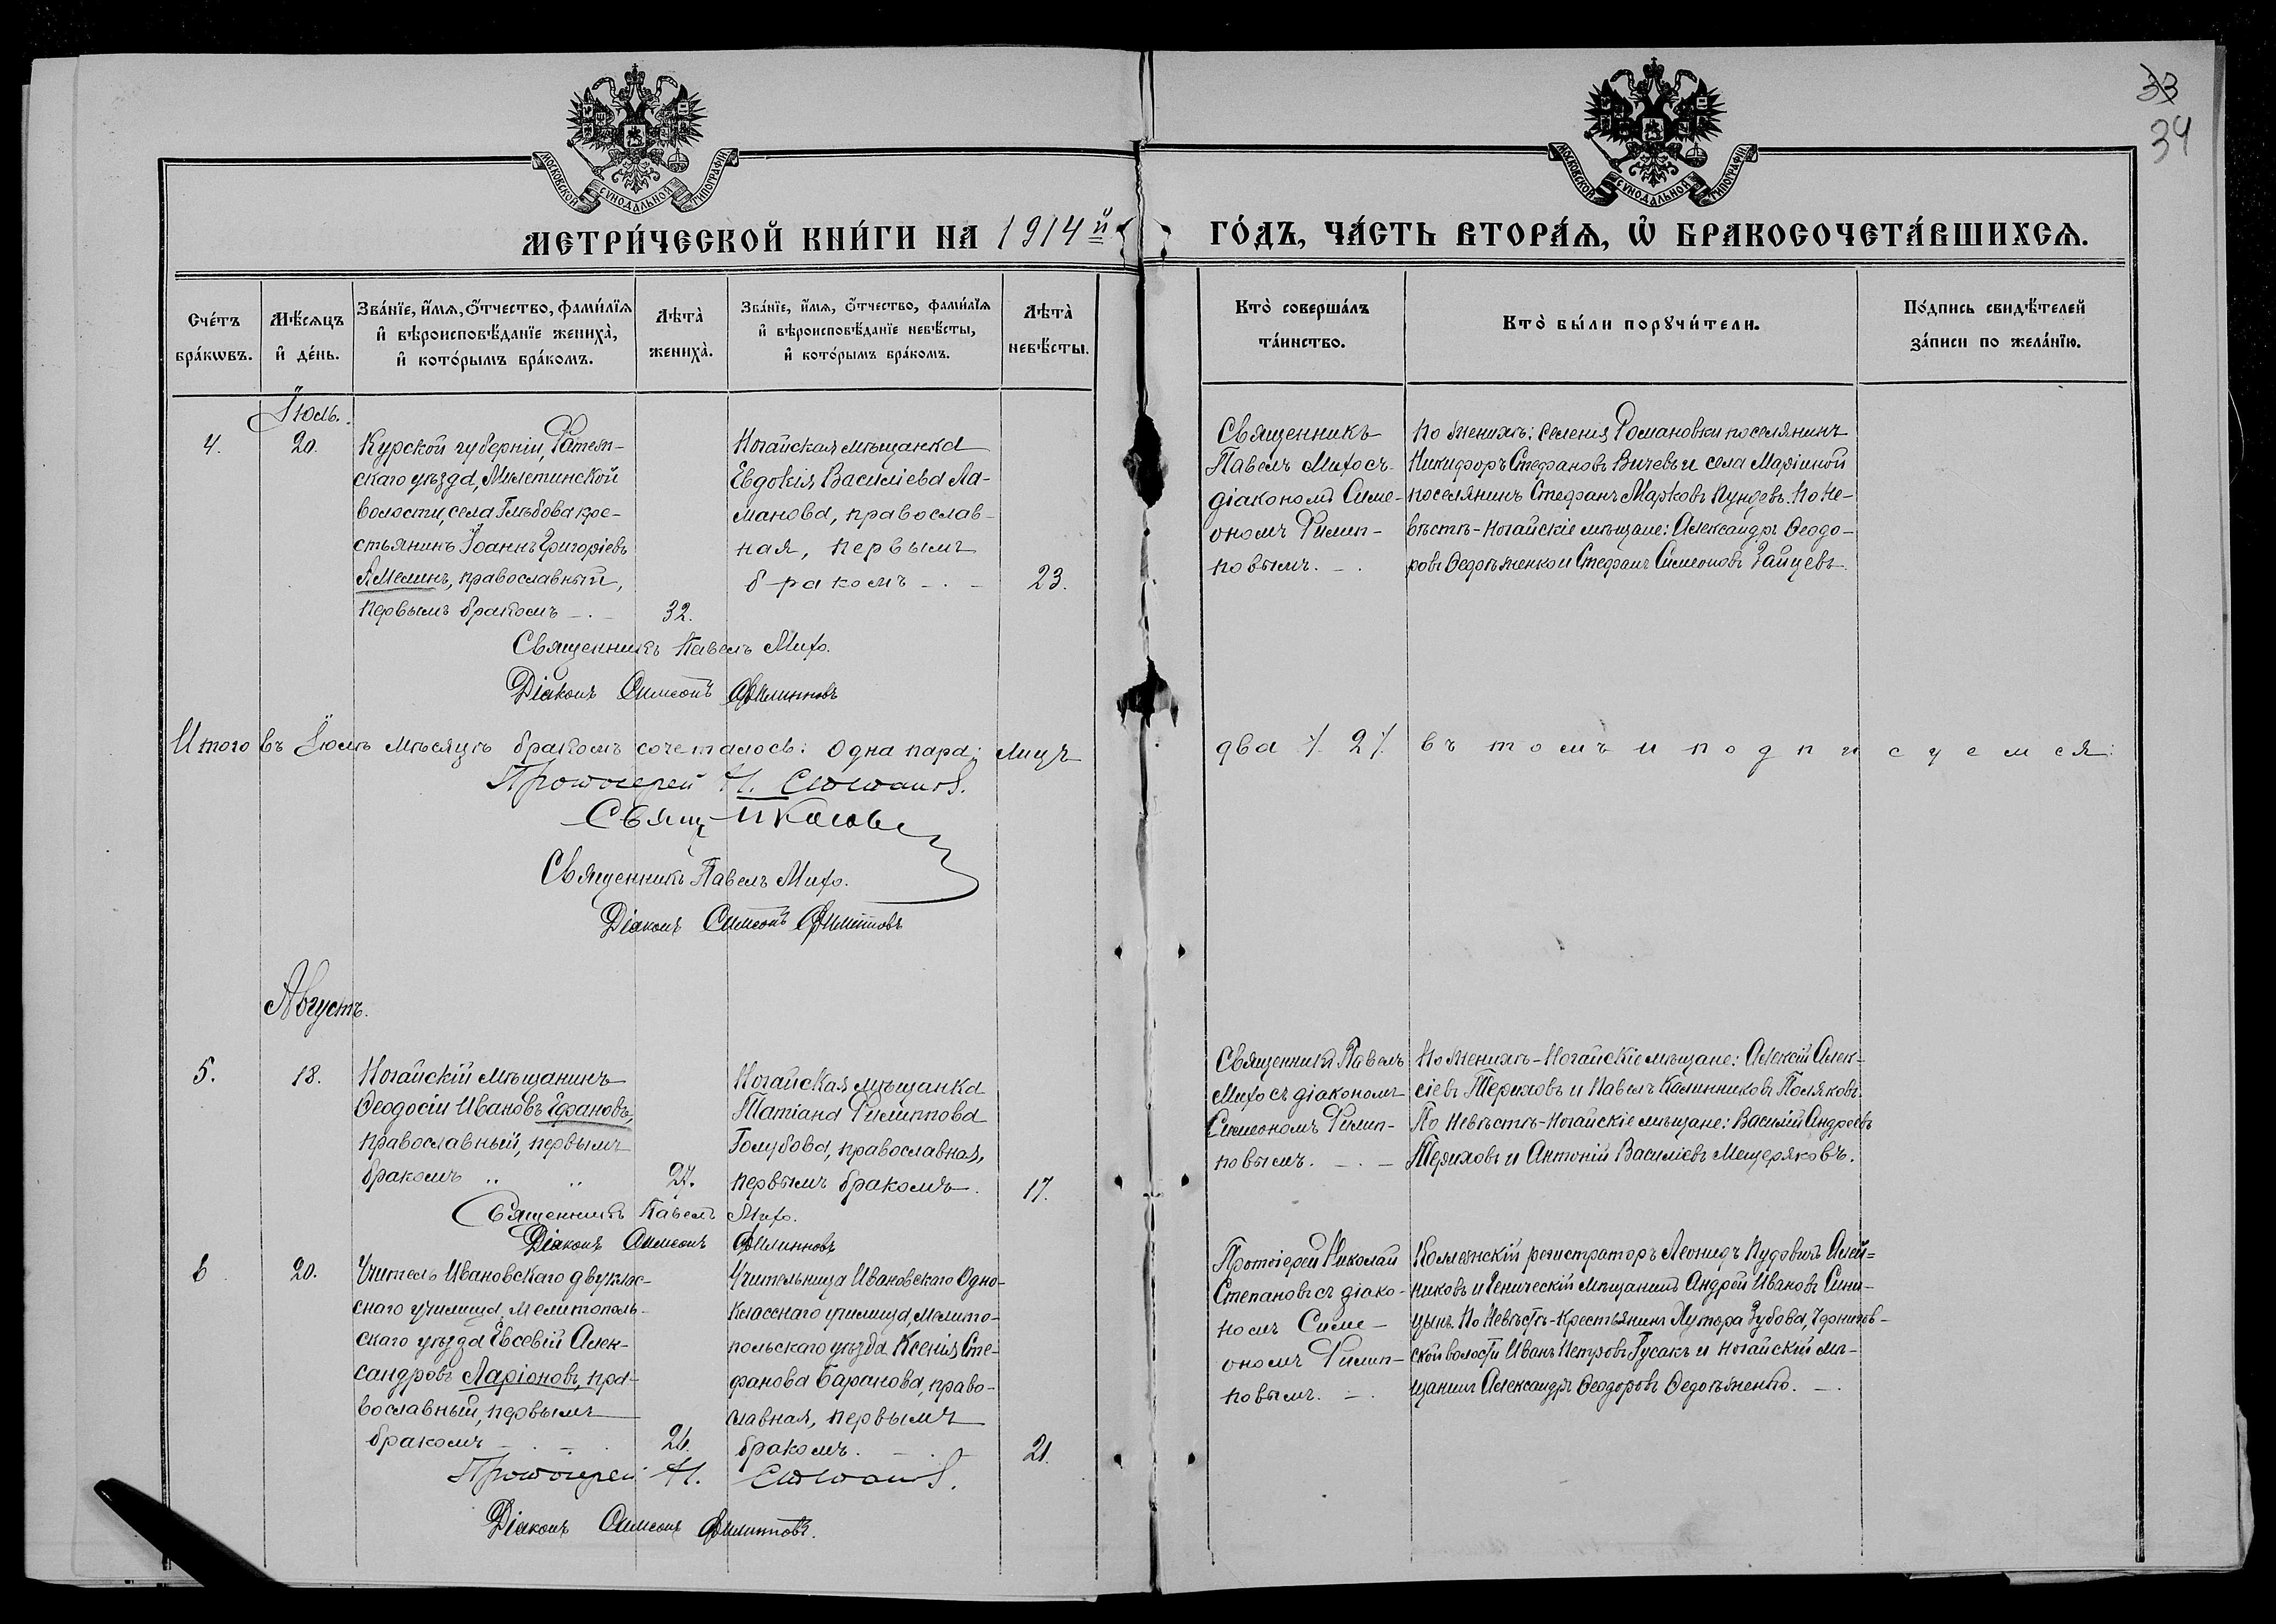 33
34
МОСКОВСКОЙ СѴНОДАЛЬНОЙ ТИПОГРАФІИ
МОСКОВСКОЙ СѴНОДАЛЬНОЙ ТИПОГРАФІИ
МЕТРИ́ЧЕСКОЙ КНИ́ГИ НА 1914й
ГО́ДЪ, ЧА́СТЬ ВТОРА́Ѧ, Ѡ БРАКОСОЧЕТА́ВШИХСѦ.
Сче́тъ
бра́кѡвъ.
Мѣ́сѧцъ
и҆ де́нь.
Зва́нїе, и҆́мѧ, ѻ҆́тчество, фами́лїѧ
и҆ вѣроисповѣ́данїе жениха̀,
и҆ кото́рымъ бра́комъ.
Лѣта̀
жениха̀.
Зва́нїе, и҆́мѧ, ѻ҆́тчество, фами́лїѧ
и҆ вѣроисповѣ́данїе невѣ́сты,
и҆ кото́рымъ бра́комъ.
Лѣта̀
невѣ́сты.
Кто̀ соверша́лъ
та́инство.
Кто̀ бы́ли порꙋчи́тели.
По́дпись свидѣ́телей
за́писи по жела́нїю.
Іюль.
4.
20.
Курской губерніи, Фатеж-
скаго уѣзда, Милетинской
волости, села Глѣбова кре-
стьянинъ Іоаннъ Григоріевъ
Амелинъ, православный,
первымъ бракомъ —.—
32.
Ногайская мѣщанка
Евдокія Василіева Ла-
манова, православ-
ная, первымъ
бракомъ —.—
23.
Священникъ
Павелъ Михо съ
діакономъ Симе-
ономъ Филип-
повымъ. — .
По женихѣ: селенія Романовки поселянинъ
Никифоръ Стефановъ Вичевъ и села Маріиной
поселянинъ Стефанъ Марковъ Пундевъ. По не-
вѣстѣ - Ногайскіе мѣщане: Александръ Ѳеодо-
ровъ Ѳедоряженко и Стефанъ Симеоновъ Зайцевъ.
Священникъ Павелъ Михо.
Діаконъ Симеонъ Филипповъ
Итого въ Іюлѣ мѣсяцѣ бракомъ сочеталось: одна пара; лицъ
два ·/. 2 ·/. въ томъ и подписуемся:
Протоіерей Н. Степановъ.
Свящ
Священникъ Павелъ Михо.
Діаконъ Симеонъ Филипповъ
Августъ.
5.
18.
Ногайскій мѣщанинъ
Ѳеодосій Ивановъ Ефановъ,
православный, первымъ
бракомъ „ „
27.
Ногайская мѣщанка
Татіана Филиппова
Голубова, православная,
первымъ бракомъ.
17.
Священникъ Павелъ
Михо съ діакономъ
Симеономъ Филип-
повымъ. — . —
По женихѣ - Ногайскіе мѣщане: Алексій Алек-
сіевъ Териховъ и Павелъ Калинниковъ Поляковъ.
По невѣстѣ - Ногайскіе мѣщане: Василій Андреевъ
Териховъ и Антоній Василіевъ Мещеряковъ.
Священникъ Павелъ Михо.
Діаконъ Симеонъ Филипповъ
6
20.
Учитель Ивановскаго двуклас-
снаго училища, Мелитополь-
скаго уѣзда Евсевій Алек-
сандровъ Ларіоновъ, пра-
вославный, первымъ
бракомъ — . — .
26.
Учительница Ивановскаго Одно-
класснаго училища, Мелито-
польскаго уѣзда Ксенія Сте-
фанова Баранова, право-
славная, первымъ
бракомъ. — .
21.
Протоіерей Николай
Степановъ съ діако-
номъ Симе-
ономъ Филип-
повымъ. — .
Коллежскій регистраторъ Леонидъ Пудовичъ Олей-
никовъ и Геническій мѣщанинъ Андрей Ивановъ Сини-
цынъ. По невѣстѣ - Крестьянинъ Хутора Зубова, Чернигов-
ской волости Иванъ Петровъ Гусакъ и Ногайскій мѣ-
щанинъ Александръ Ѳеодоровъ Ѳедоряженко. —.
Протоіерей Н. Степановъ.
Діаконъ Симеонъ Филипповъ.